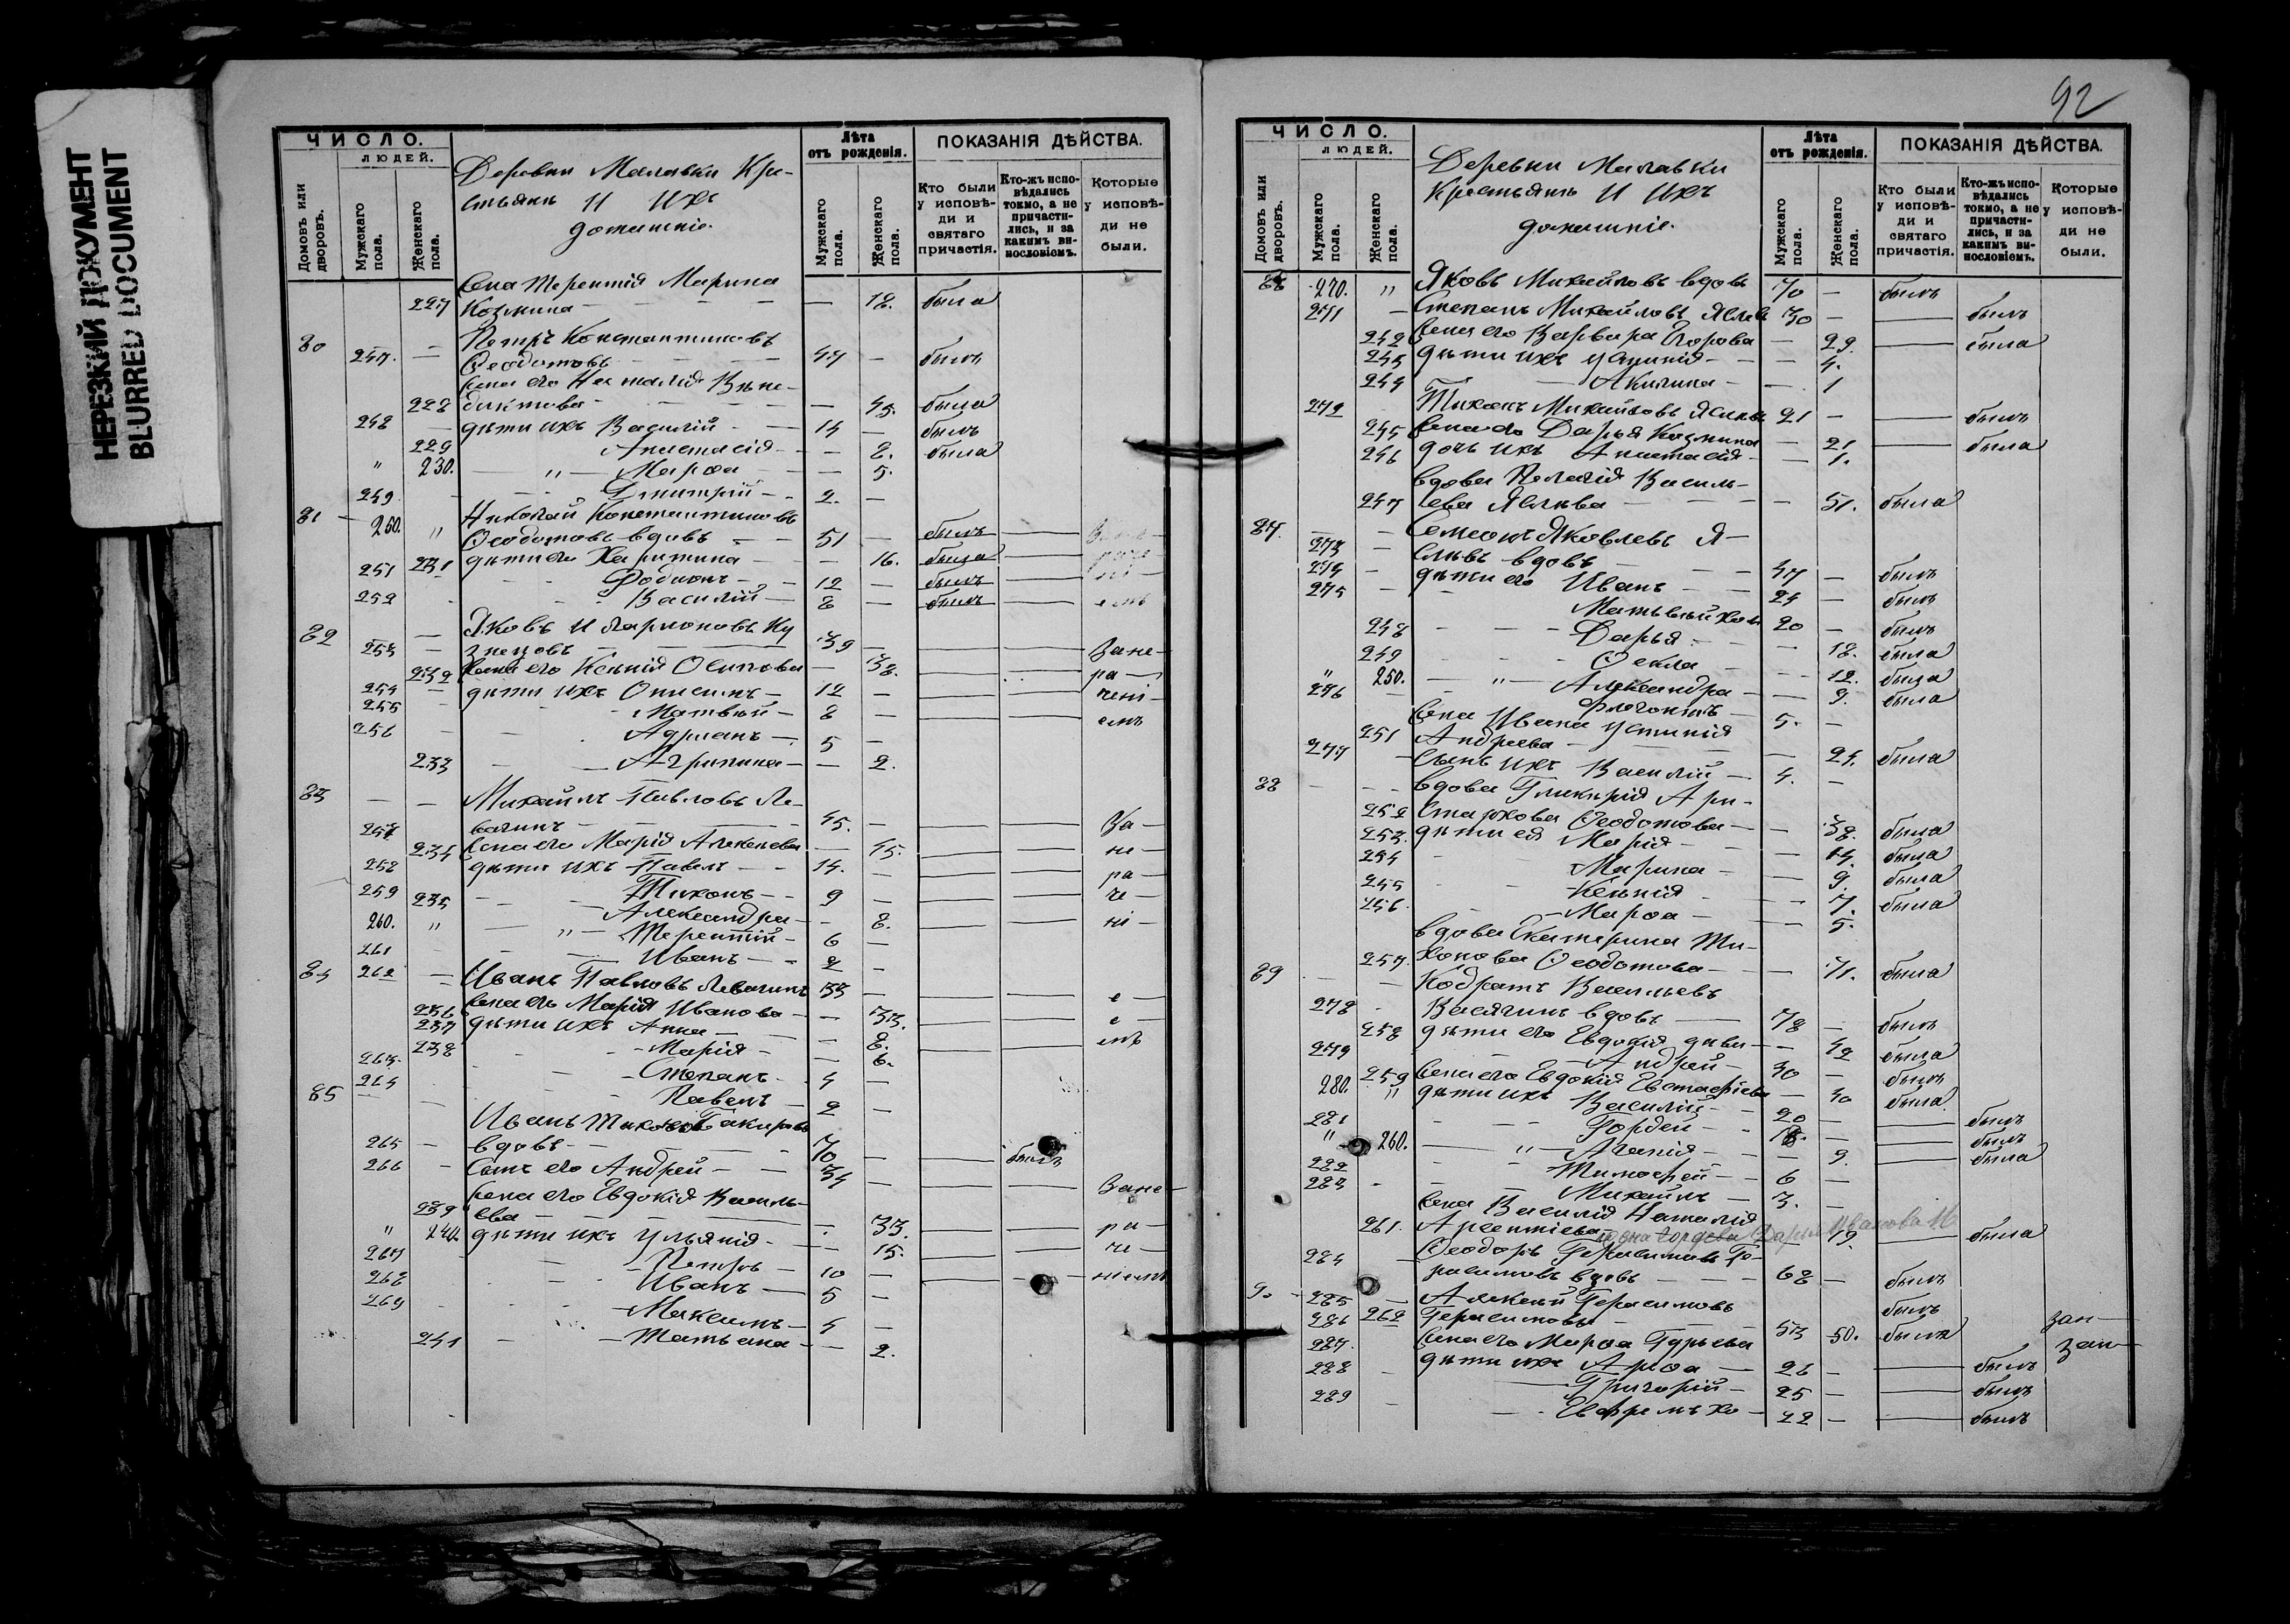 НЕРЕЗКИЙ ДОКУМЕНТ
BLURRED DOCUMENT
ЧИСЛО.
ЛЮДЕЙ.
Домовъ или дворовъ.
Мужскаго пола.
Женскаго пола.
Деревни Малавки Кре-
стьяне И Ихъ
домашніе.
Лѣта отъ рожденія.
Мужскаго пола.
Женскаго пола.
ПОКАЗАНІЯ ДѢЙСТВА.
Кто были у исповѣди и святаго причастія.
Кто-жъ исповѣдались токмо, а не причастились, и за какимъ винословіемъ.
Которые у исповѣди не были.
Жена Терентія Марина
227 Козмина — 18. была
80 Петръ Константиновъ
247. Ѳеодотовъ 47 — былъ
Жена его Наталія Вене-
228 диктова — 45. была
248 дѣти ихъ Василій 14 — былъ
229 Анастасія — 8. была
" 230. " Марѳа — 5.
249 Дмитрій 2. —
81 Николай Константиновъ
250. " Ѳеодотовъ вдовъ 51 — былъ
231 дѣти его Харитина — 16. была
251 Родионъ 12 — былъ
252 Василій 8 — былъ
82 Яковъ Иларионовъ Ку
253 знецовъ 39 — Зане-
232 Жена его Ксенія Осипова — 38. ра-
254 дѣти ихъ Онисимъ 12 — чені-
255 Матвѣй 8 — емъ
256 Адрианъ 5 —
233 Агрипина — 2.
83 Михаилъ Павловъ Ле-
257 вагинъ 45. — За-
234 Жена его Марія Алексеева — 45. не-
258 дѣти ихъ Павелъ 14. — ра-
259 Тихонъ 9 — че-
235 Александра — 8. ні-
260. " " Терентій 6 —
261 Иванъ 2 —
84 262 — Иванъ Павловъ Левагинъ 33 — е-
236 Жена его Марія Иванова — 33. е-
237 дѣти ихъ Анна — 8. емъ
238 Марія — 6.
263 Степанъ 4 —
264 Павелъ 2 —
85 Иванъ Тихоновъ
265 — вдовъ 70 — былъ
266 — Сынъ его Андрей 34 — Зане-
Жена его Евдокія Василь-
239 ева — 33. ра-
" 240. дѣти ихъ Ульянія — 15. че-
267 Петръ 10 — ніемъ
268 Иванъ 5 —
269 Максимъ 4 —
241 Татьяна — 2.
92
ЧИСЛО.
ЛЮДЕЙ.
Домовъ или дворовъ.
Мужскаго пола.
Женскаго пола.
Деревни Малавки
Крестьяне И Ихъ
домашніе.
Лѣта отъ рожденія.
Мужскаго пола.
Женскаго пола.
ПОКАЗАНІЯ ДѢЙСТВА.
Кто были у исповѣди и святаго причастія.
Кто-жъ исповѣдались токмо, а не причастились, и за какимъ винословіемъ.
Которые у исповѣди не были.
86 270. " Яковъ Михайловъ вдовъ 70 — былъ
271 — Степанъ Михайловъ 30 — былъ
242 Жена его Варвара Егорова — 29. была
243 дѣти ихъ Устинія — 4.
244 Акилина — 1
272 Тихонъ Михайловъ 21 — былъ
245 Жена его Дарья Козмина — 21. была
246 дочь ихъ Анастасія — 1.
вдова Пелагія Василь-
247 ева — 51. была
87. Самсонъ Яковлевъ
273 вдовъ 47 — былъ
274 дѣти его Иванъ 24 — былъ
275 Матвѣй 20 — былъ
248 Дарья — 18. была
249 Ѳекла — 12. была
" 250. " Александра — 9. была
276 5. —
Жена Ивана Устинія
251 Андреева — 24. была
277 Сынъ ихъ Василій 4. —
88 вдова Гликерія Ари-
252 стархова Ѳеодотова — 38. была
253. дѣти ея Марія — 14. была
254 Марина — 9. была
255 Ксенія — 7. была
256. Марѳа — 5.
вдова Екатерина Ти-
257. хонова Ѳеодотова — 71. была
89 Кодратъ Васильевъ
278 вдовъ 78 — былъ
258 дѣти его Евдокія дѣви- — 42 была
279 Андрей 30 — былъ
259 Жена его Евдокія Евстафіева — 40 была.
280. " дѣти ихъ Василій 20 — былъ
281 Гордей 18. — былъ
" 260. " Агапія — 9. была
282 Тимофей 6 —
283 Михаилъ 3. —
Жена Василія Наталія
261. Арсентіева — 19. была
Жена Гордея Дарья Иванова
284 Ѳеодоръ Герасимовъ Ге-
расимовъ вдовъ 68 — былъ
90 285 Алексѣй Герасимовъ былъ
286 262 Герасимовъ 53 50. была зан-
287. Жена его Марѳа Гурьева зан-
288 дѣти ихъ 26 — былъ
Григорій 25 — былъ
289 22 — былъ